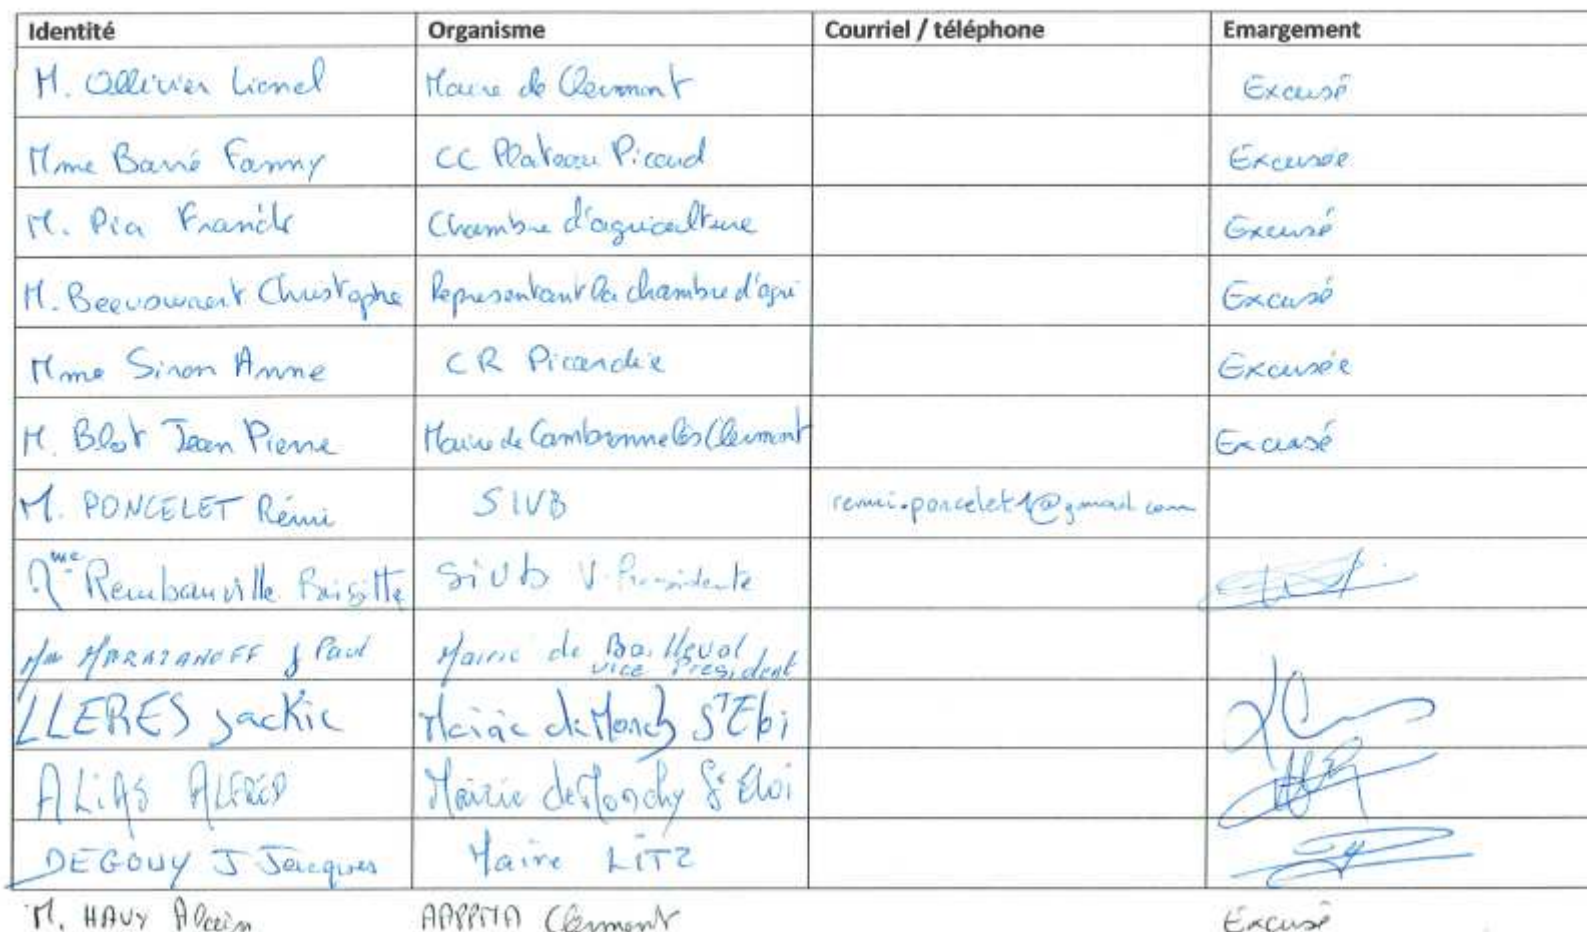 Identité Organisme Courriel / téléphone Emargement
M. Ollivier Lionel Maire de Clermont Excusé
Mme Barré Fanny CC Plateau Picard Excusée
M. Pia Franck Chambre d'agriculture Excusé
M. Christophe Representant la chambre d'agri Excusé
Mme Siron Anne CR Picardie Excusée
M. Blot Jean Pierre Maire de Cambronne lès Clermont Excusé
M. PONCELET Rémi SIVB remi.poncelet1@gmail.com
Mme Rembauville Brigitte SIVB V. Présidente
MARAZANOFF J Paul Mairie de Bailleval
vice Président
LLERES Jackie Mairie de Monchy St Eloi
ALIAS ALFRED Mairie de Monchy St Eloi
DEGOUY J Jacques Maire LITZ
M. HAVY Alain AAPPMA Clermont Excusé